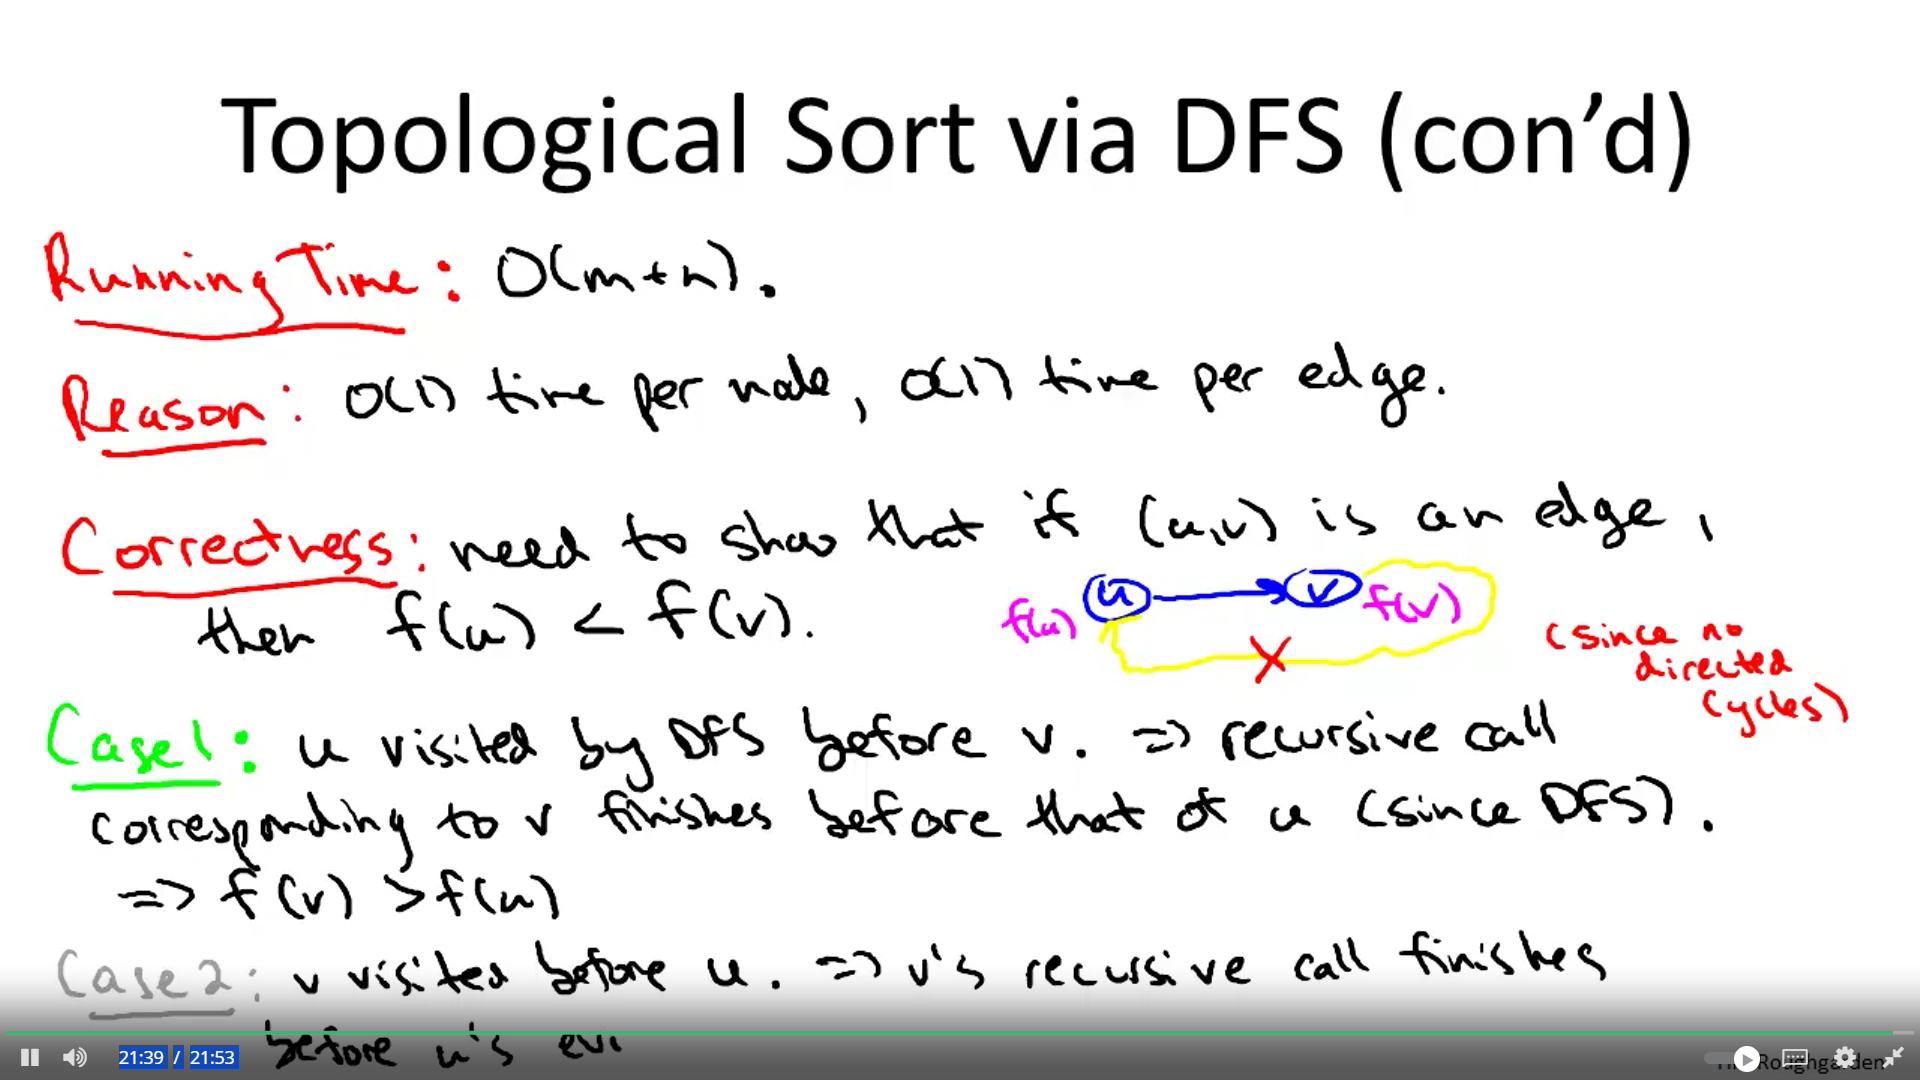 Topological Sort via DFS (con’d)
Running Time: O(m+n).
Reason: O(1) time per node, O(1) time per edge.
Correctness: need to show that if (u,v) is an edge,
then f(u) < f(v).
f(u) u v f(v)
(since no
directed
cycles)
Case 1: u visited by DFS before v. => recursive call
corresponding to v finishes before that of u (since DFS).
=> f(v) > f(u)
Case 2: v visited before u. => v's recursive call finishes
before u's
21:39 / 21:53
Roughgarden